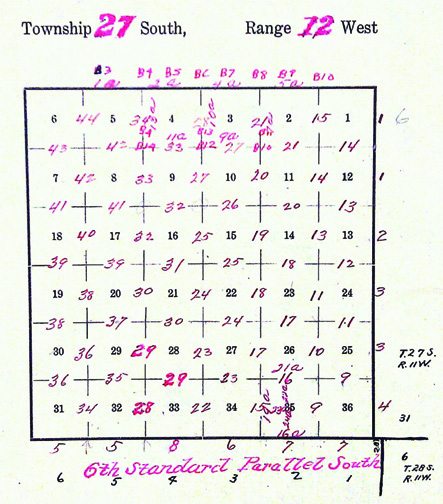 Township 27 South, Range 12 West
B3 B4 B5 B6 B7 B8 B9 B10
1a 2a 4a 5a
6 44 5 4 3 2 15 1 1 6
11a 9a
43 42 B14 33 B12 27 B10 21 14
7 42 8 33 9 27 10 20 11 14 12 1
41 41 32 26 20 13
18 40 17 32 16 25 15 19 14 13 13 2
39 39 31 25 18 12
19 38 20 30 21 24 22 18 23 11 24 3
38 37 30 24 17 11
30 36 29 29 28 23 27 17 26 10 25 3 T.27S.
R.11W.
21a
36 35 29 23 16 9
31 34 32 28 33 22 34 15 35 9 36 4 31
16a
5 5 8 6 7 7
6th Standard Parallel South
6 5 4 3 2 1
6
T.28S.
R.11W.